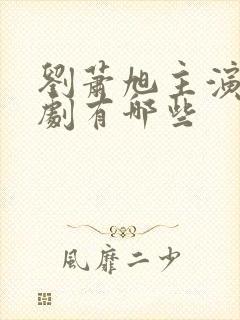 劉蕭旭主演
劇有哪些
風靡二少